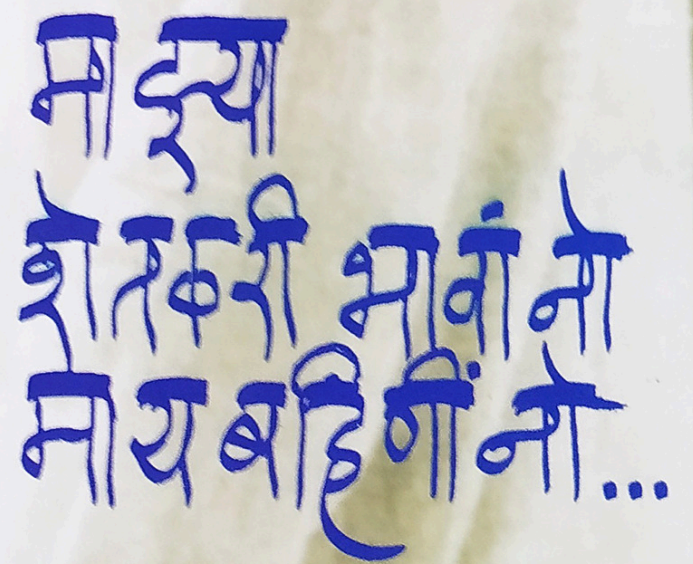 माझ्या
शेतकरी भावांनो
मायबहिणींनो...